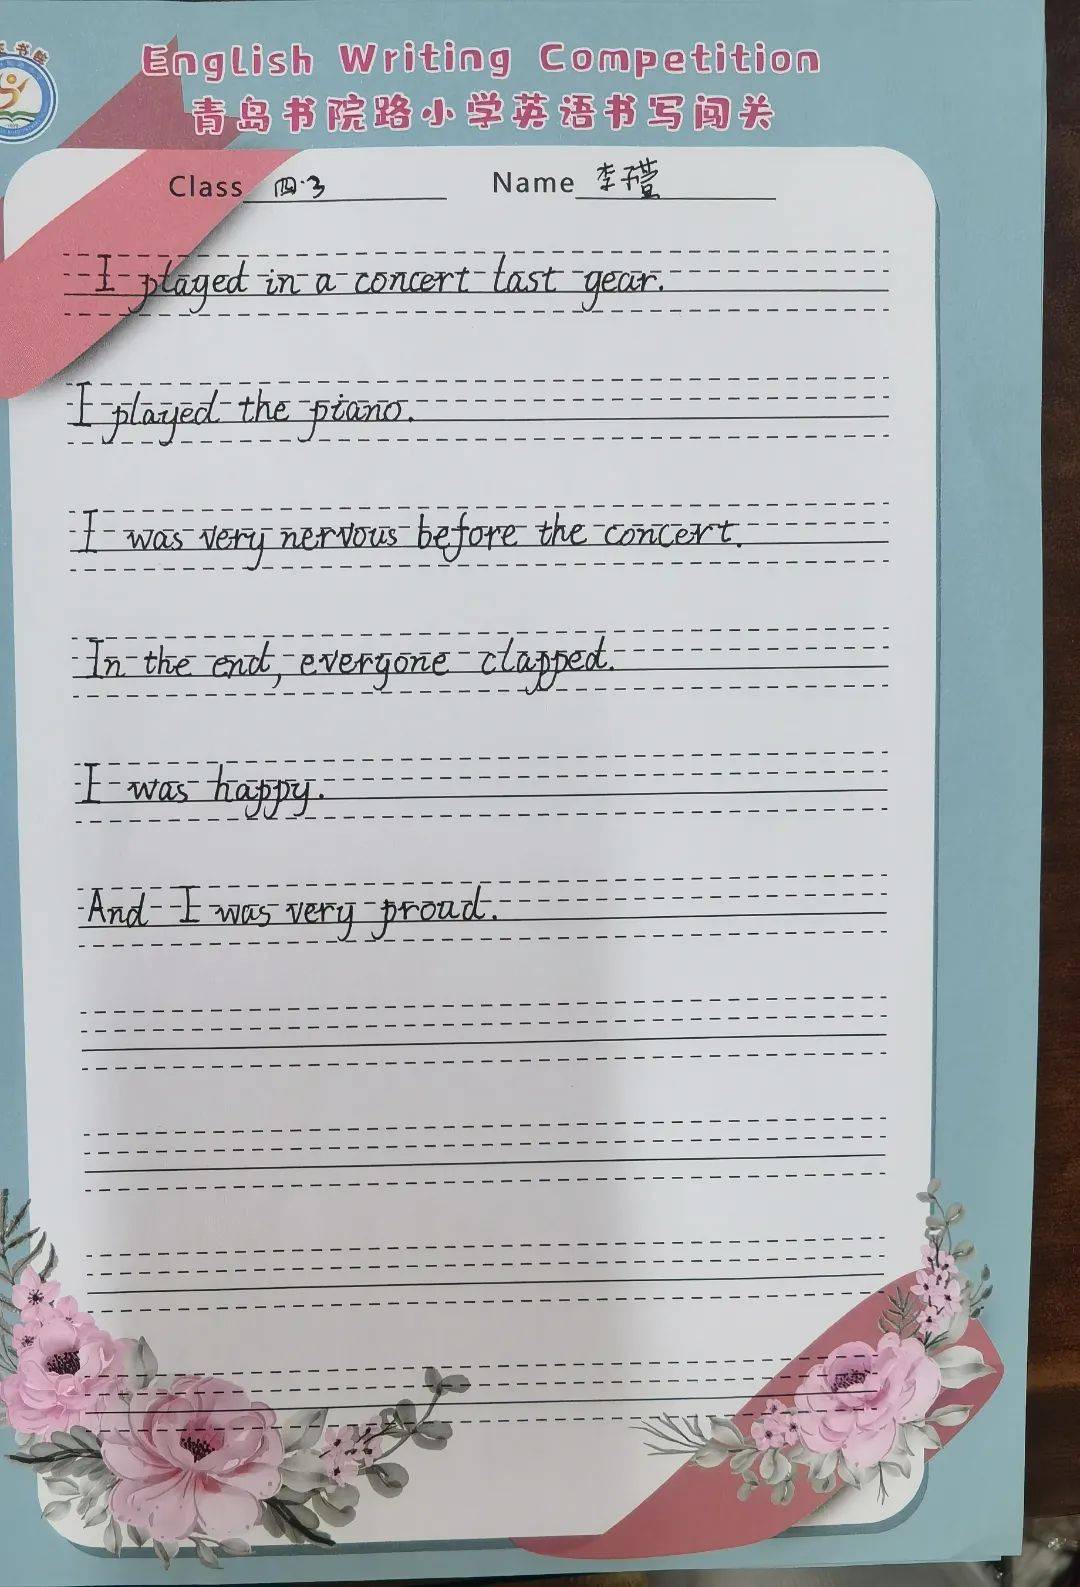 English Writing Competition
青岛书院路小学英语书写闯关
Class 四.3 Name 李子萱
I played in a concert last year.
I played the piano.
I was very nervous before the concert.
In the end, everyone clapped.
I was happy.
And I was very proud.